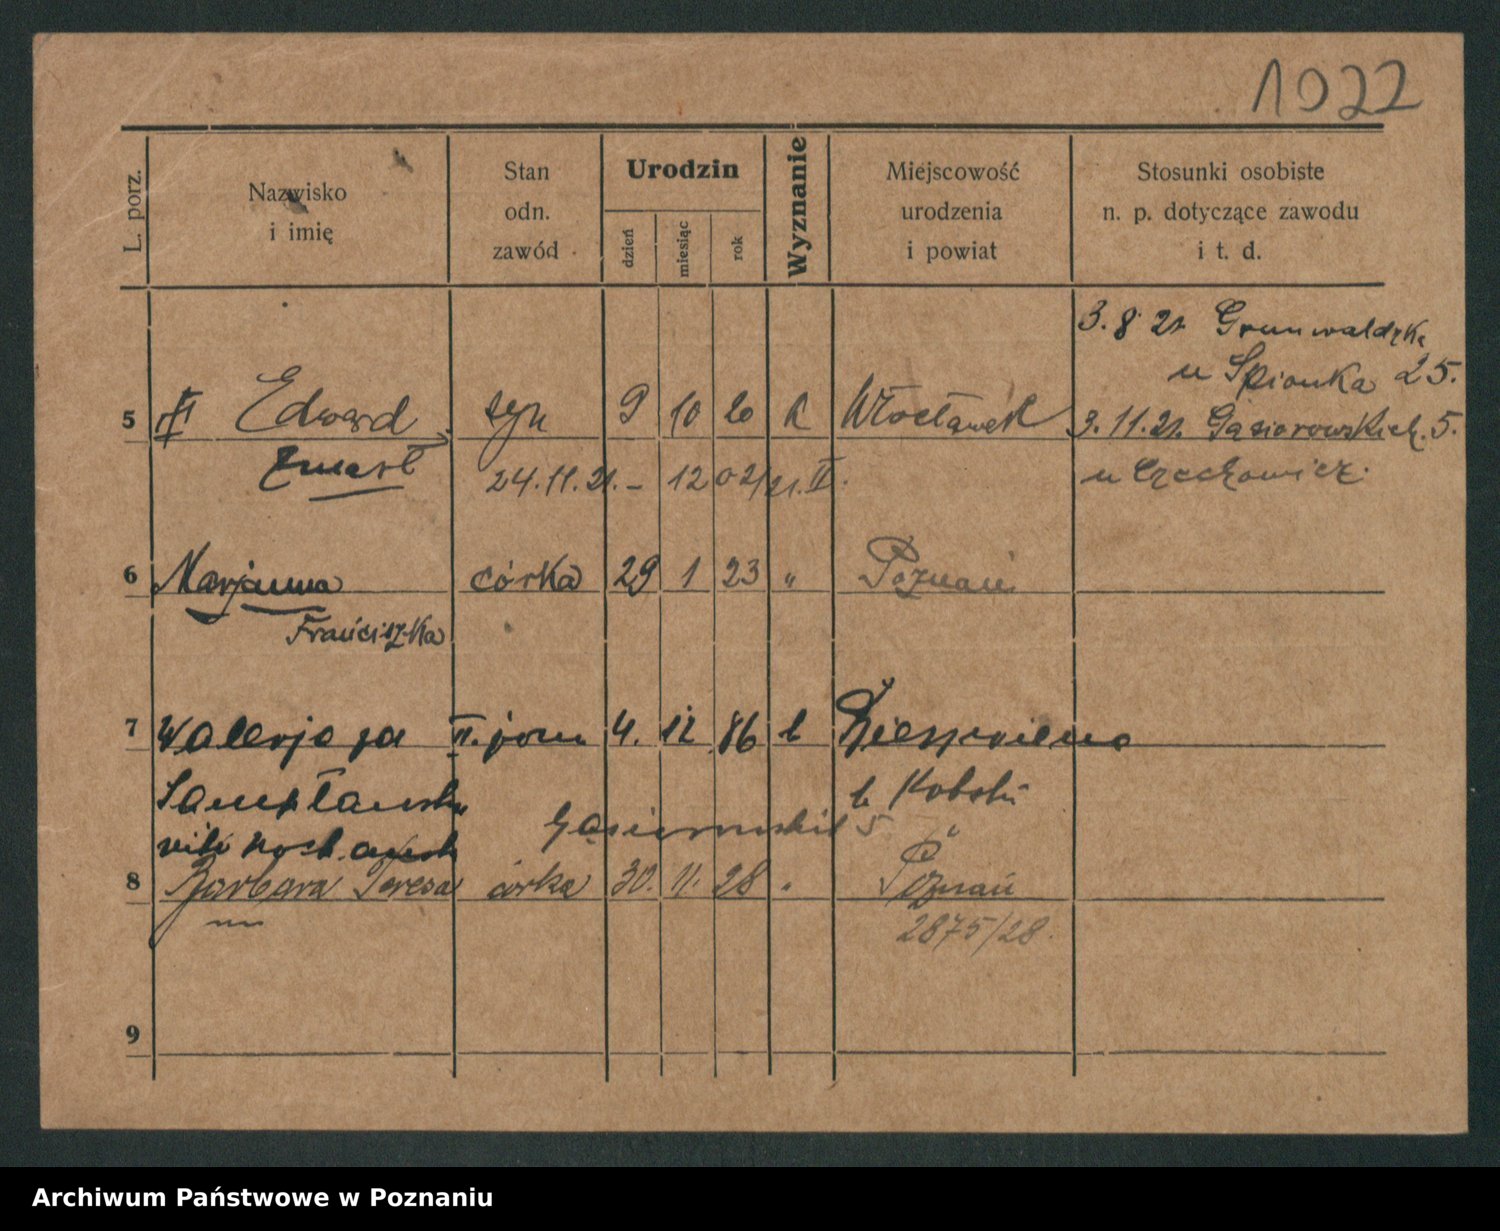 1022
L. porz.
Nazwisko
i imię
Stan
odn.
zawód
Urodzin
dzień
miesiąc
rok
Wyznanie
Miejscowość
urodzenia
i powiat
Stosunki osobiste
n. p. dotyczące zawodu
i t. d.
3. 8 21. Grunwaldzka
u Spionka 25.
5 Edward syn 9 10 20 k Włocławek 3. 11. 21. Gąsiorowskich. 5.
zmarł 24. 11. 21. - 12
u Czechowicz.
6 Marjanna córka 29 1 23 " Poznań
Franciszka
7 Walerja II. żona 4. 12 86
Gąsiorowskich 5
8 Barbara Teresa córka 30. 11. 28 " Poznań
2875/28.
9
Archiwum Państwowe w Poznaniu